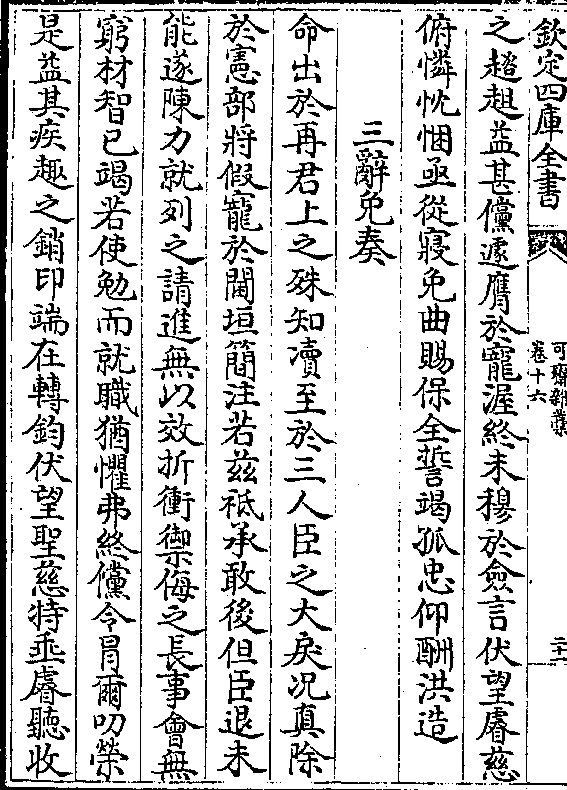 欽定四庫全書
可齋雜藁
卷十六
二十一
之趦趄益甚儻遽膺於寵渥終未穆於僉言伏望睿慈
俯憐忱悃亟從寢免曲賜保全誓竭孤忠仰酬洪造
三辭免奏
命出於再君上之殊知凟至於三人臣之大戾况真除
於憲部將假寵於閫垣簡注若兹祗承敢後但臣退未
能遂陳力就列之請進無以效折衝禦侮之長事會無
窮材智已竭若使勉而就職猶懼弗終儻令冐爾叨榮
是益其疾趣之銷印端在轉鈞伏望聖慈特垂睿聽收